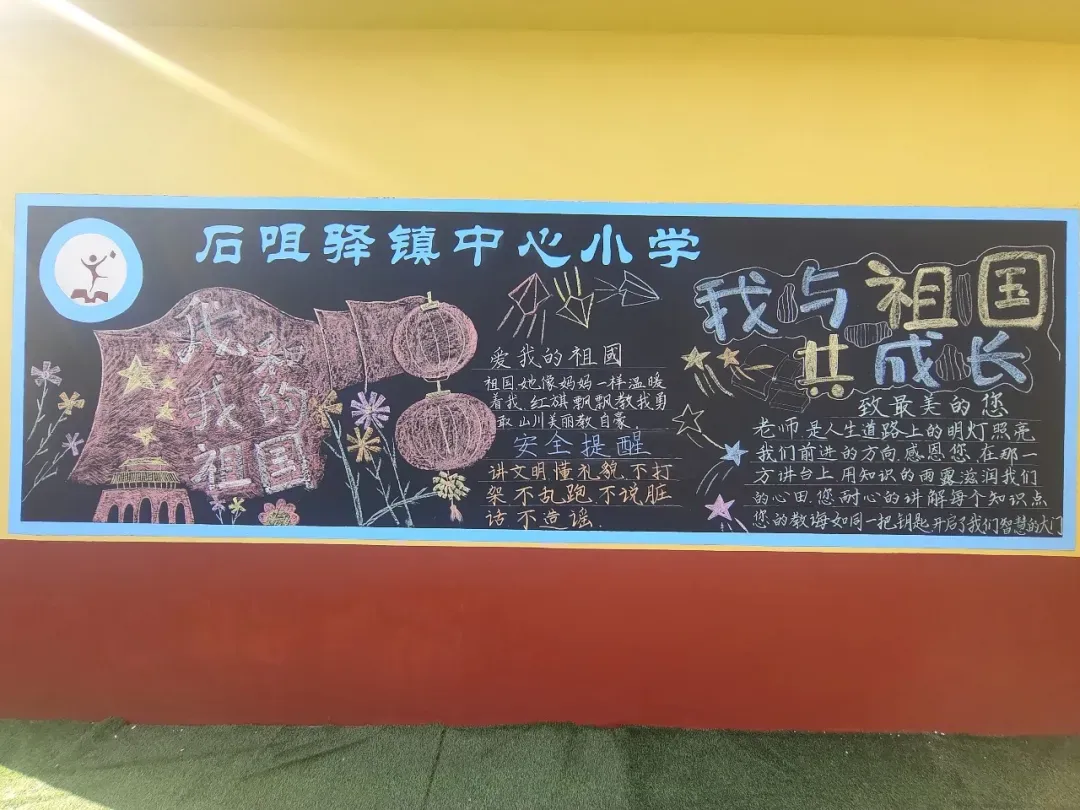 石咀驿镇中心小学
我和
我的
祖国
爱我的祖國
祖国她像妈妈一样温暖
着我.红旗飘飘教我勇
敢山川美丽教自豪.
安全提醒
讲文明懂礼貌.不打
架不乱跑.不说脏
话不造谣.
我与祖国
共成长
致最美的您
老师.是人生道路上的明灯照亮
我们前进的方向.感恩您.在那一
方讲台上.用知识的雨露滋润我们
的心田.您耐心的讲解每个知识点
您的教诲如同一把钥匙.开启了我们智慧的大门